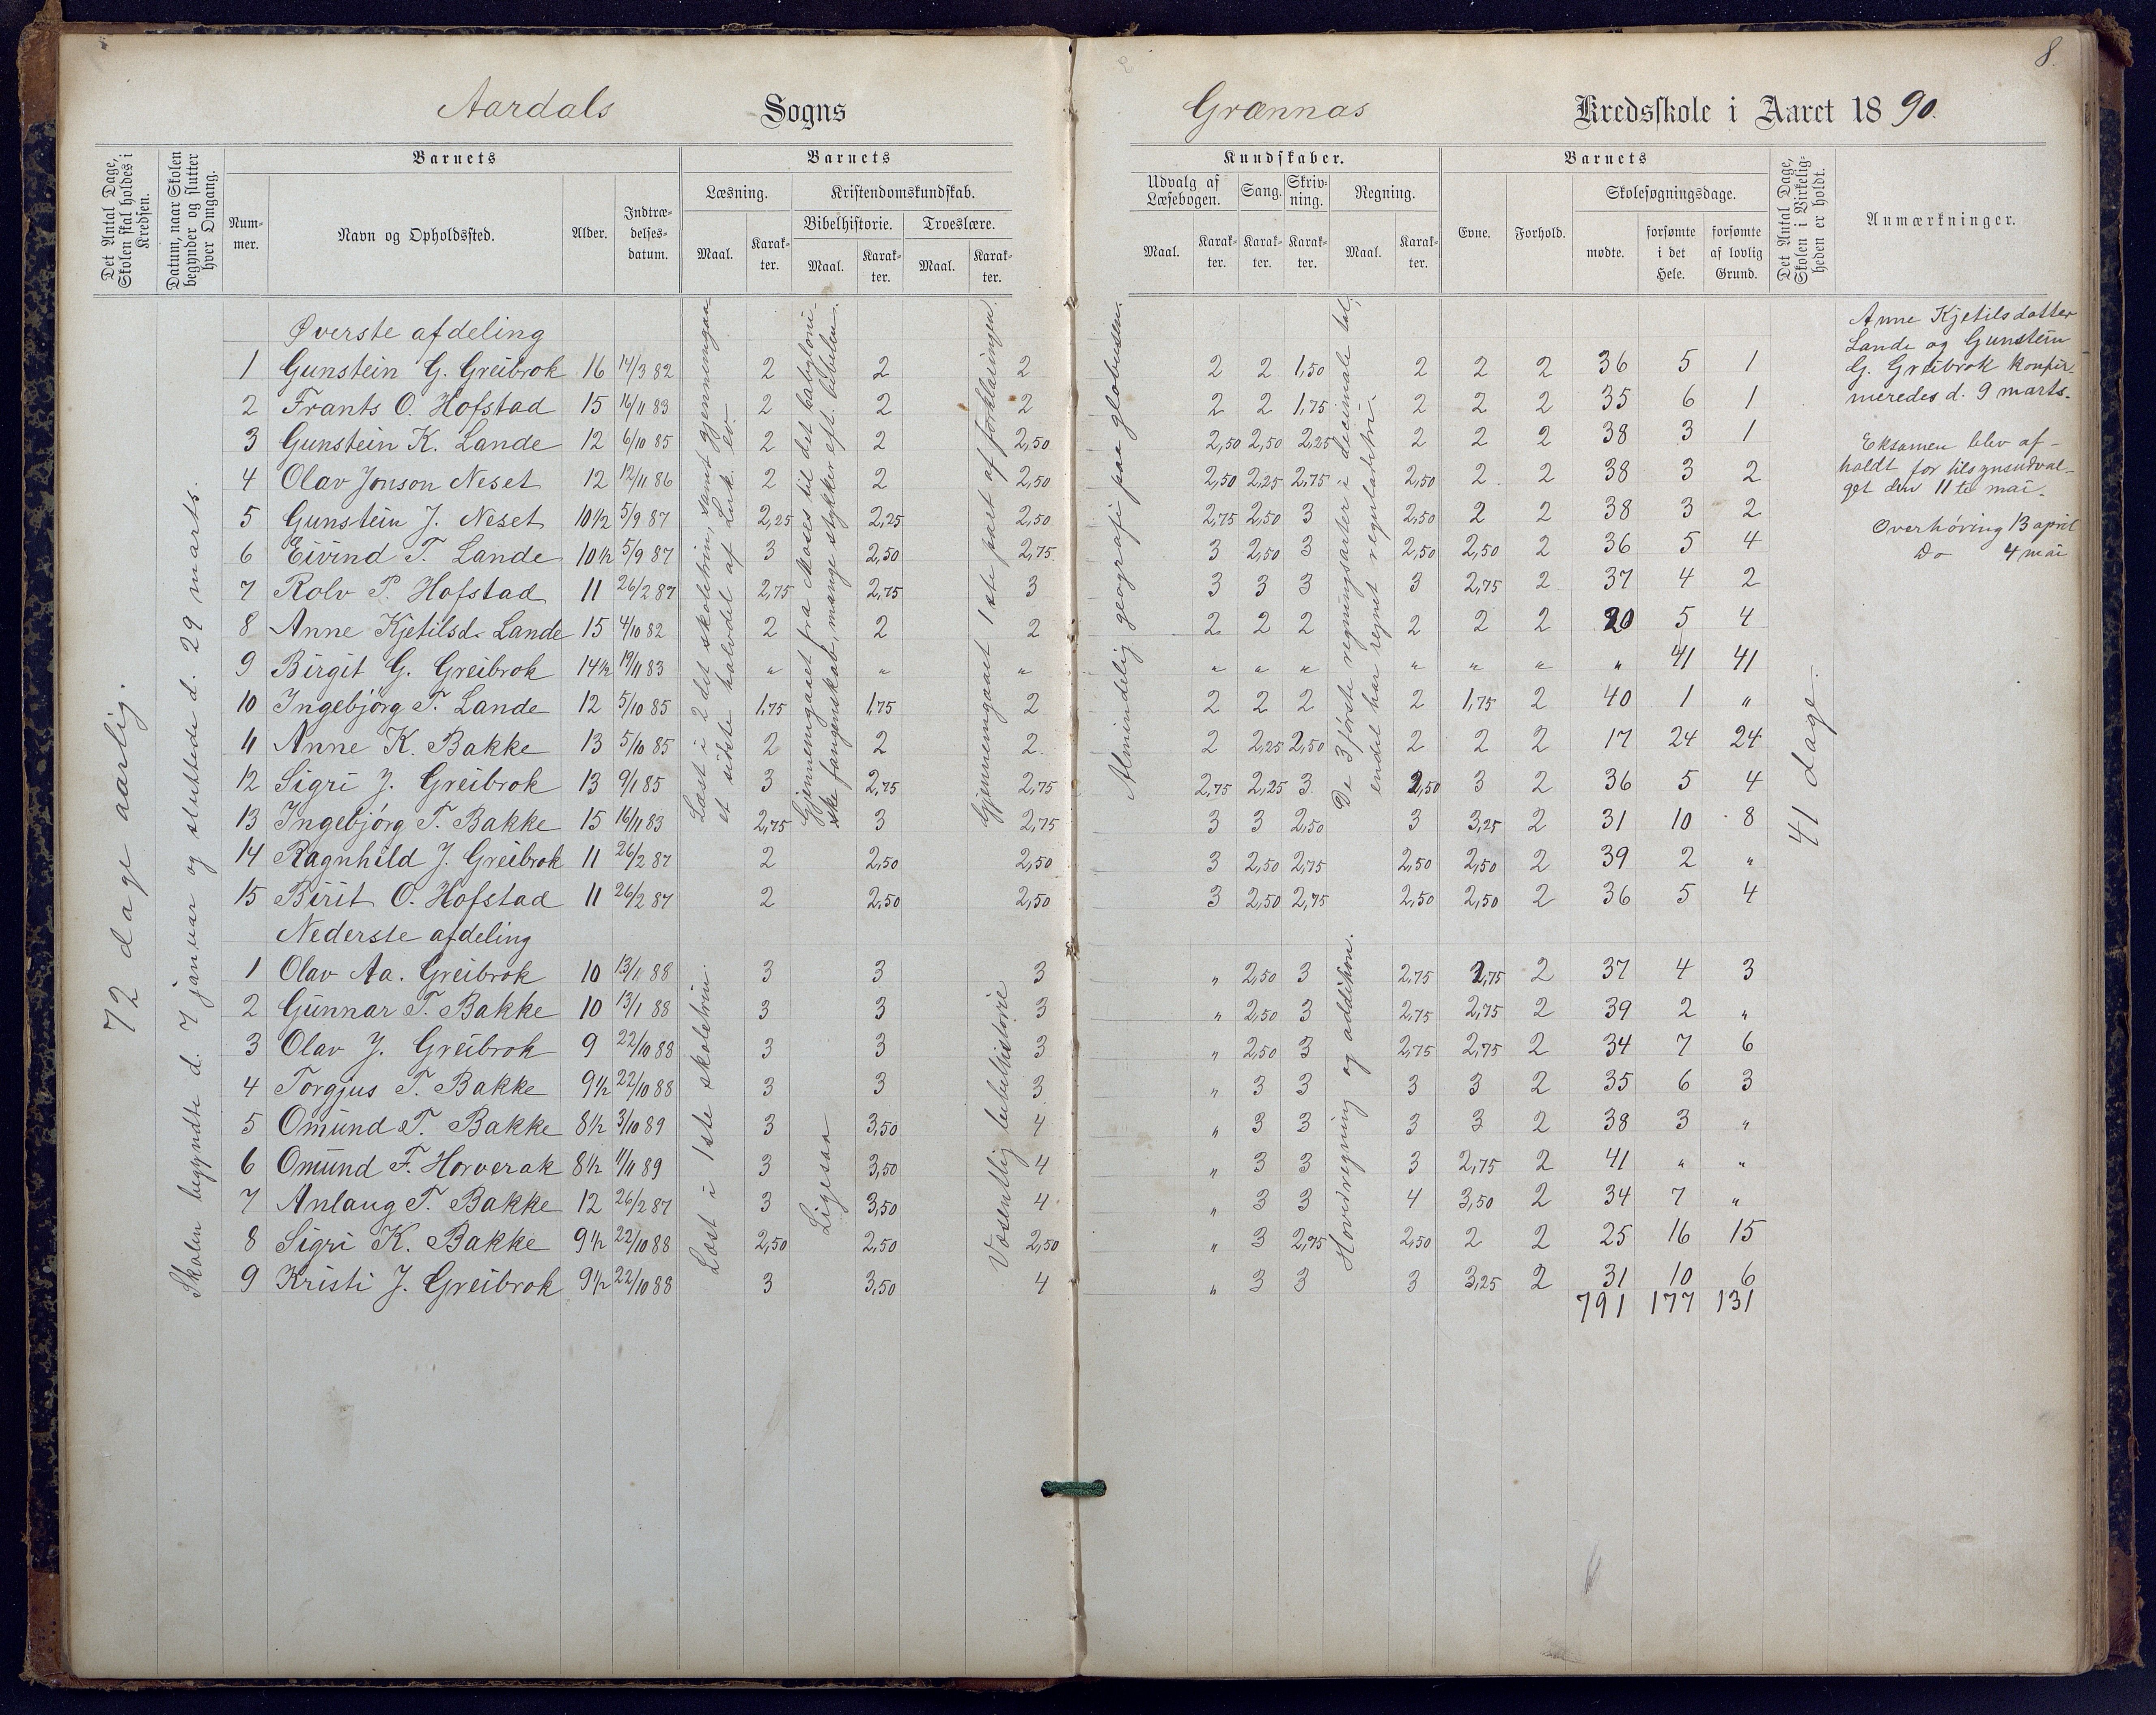 8.
Aardals Sogns
Grønnas Kredsskole i Aaret 1890.
Det Antal Dage, Skolen skal holdes i Kredsen.
Datum, naar Skolen begynder og slutter hver Omgang.
Barnets
Nummer.
Navn og Opholdssted.
Alder.
Indtrædelsesdatum.
Barnets
Læsning.
Maal. Karakter.
Kristendomskundskab.
Bibelhistorie.
Maal. Karakter.
Troeslære.
Maal. Karakter.
Kundskaber.
Udvalg af Læsebogen.
Maal. Karakter.
Sang.
Karakter.
Skrivning.
Karakter.
Regning.
Maal. Karakter.
Barnets
Evne. Forhold.
Skolesøgningsdage.
mødte. forsømte i det Hele. forsømte af lovlig Grund.
Det Antal Dage, Skolen i Virkeligheden er holdt.
Anmærkninger.
72 dage aarlig.
Skolen begyndte d. 7 januar og sluttede d. 29 marts.
Øverste afdeling
1 Gunstein G. Greibrok 16 14/3 82 2 2 2 2 2 1,50 2 2 2 36 5 1
2 Frants O. Hofstad 15 16/11 83 2 2 2 2 2 1,75 2 2 2 35 6 1
3 Gunstein K. Lande 12 6/10 85 2 2 2,50 2,50 2,50 2,25 2 2 2 38 3 1
4 Olav Jonson Neset 12 12/11 86 2 2 2,50 2,50 2,25 2,75 2,50 2 2 38 3 2
5 Gunstein J. Neset 10 1/2 5/9 87 2,25 2,25 2,50 2,75 2,50 3 2,50 2 2 38 3 2
6 Eivind T. Lande 10 1/2 5/9 87 3 2,50 2,75 3 2,50 3 2,50 2,50 2 36 5 4
7 Rolv P. Hofstad 11 26/2 87 2,75 2,75 3 3 3 3 3 2,75 2 37 4 2
8 Anne Kjetilsd. Lande 15 4/10 82 2 2 2 2 2 2 2 2 2 20 5 4
9 Birgit G. Greibrok 14 1/2 19/11 83 " " " " " " " " " " 41 41
10 Ingebjørg T. Lande 12 5/10 85 1,75 1,75 2 2 2 2 2 1,75 2 40 1 "
11 Anne K. Bakke 13 5/10 85 2 2 2 2 2,25 2,50 2 2 2 17 24 24
12 Sigri J. Greibrok 13 9/1 85 3 2,75 2,75 2,75 2,25 3 2,50 3 2 36 5 4
13 Ingebjørg T. Bakke 15 16/11 83 2,75 3 2,75 3 3 2,50 3 3,25 2 31 10 8
14 Ragnhild J. Greibrok 11 26/2 87 2 2,50 2,50 3 2,50 2,75 2,50 2,50 2 39 2 "
15 Birit O. Hofstad 11 26/2 87 2 2,50 2,50 3 2,50 2,75 2,50 2,50 2 36 5 4
Læst i 2 det skoletrin, samt gjennemgaa-
et sidste halvdel af Luk. ev.
Gjennemgaaet fra Moses til det babyloni-
ske fangenskab, mange stykker eft. bibelen.
Gjennemgaaet 1ste part af forklaringen.
Almindelig geografi paa globusen.
De 3 første regningsarter i decimale tal,
endel har regnet reguladetri.
41 dage.
Nederste afdeling
1 Olav Aa. Greibrok 10 13/1 88 3 3 3 " 2,50 3 2,75 2,75 2 37 4 3
2 Gunnar T. Bakke 10 13/1 88 3 3 3 " 2,50 3 2,75 2,75 2 39 2 "
3 Olav J. Greibrok 9 22/10 88 3 3 3 " 2,50 3 2,75 2,75 2 34 7 6
4 Torgjus T. Bakke 9 1/2 22/10 88 3 3 3 " 3 3 3 3 2 35 6 3
5 Omund T. Bakke 8 1/2 3/10 89 3 3,50 4 " 3 3 3 3 2 38 3 "
6 Omund F. Horverak 8 1/2 11/11 89 3 3,50 4 " 3 3 3 2,75 2 41 " "
7 Anlaug T. Bakke 12 26/2 87 3 3,50 4 " 3 3 4 3,50 2 34 7 "
8 Sigri K. Bakke 9 1/2 22/10 88 2,50 2,50 2,50 " 3 2,75 2,50 2 2 25 16 15
9 Kristi J. Greibrok 9 1/2 22/10 88 3 3,50 4 " 3 3 3 3,25 2 31 10 6
791 177 131
Læst i 1ste skoletrin.
Ligesaa
Væsentlig bibelhistorie
Hovedregning og addition.
Anne Kjetilsdatter
Lande og Gunstein
G. Greibrok konfir-
meredes d. 9 marts.
Eksamen blev af-
holdt for tilsynsudval-
get den 11 te mai.
Overhøring 13 april
Do 4 mai